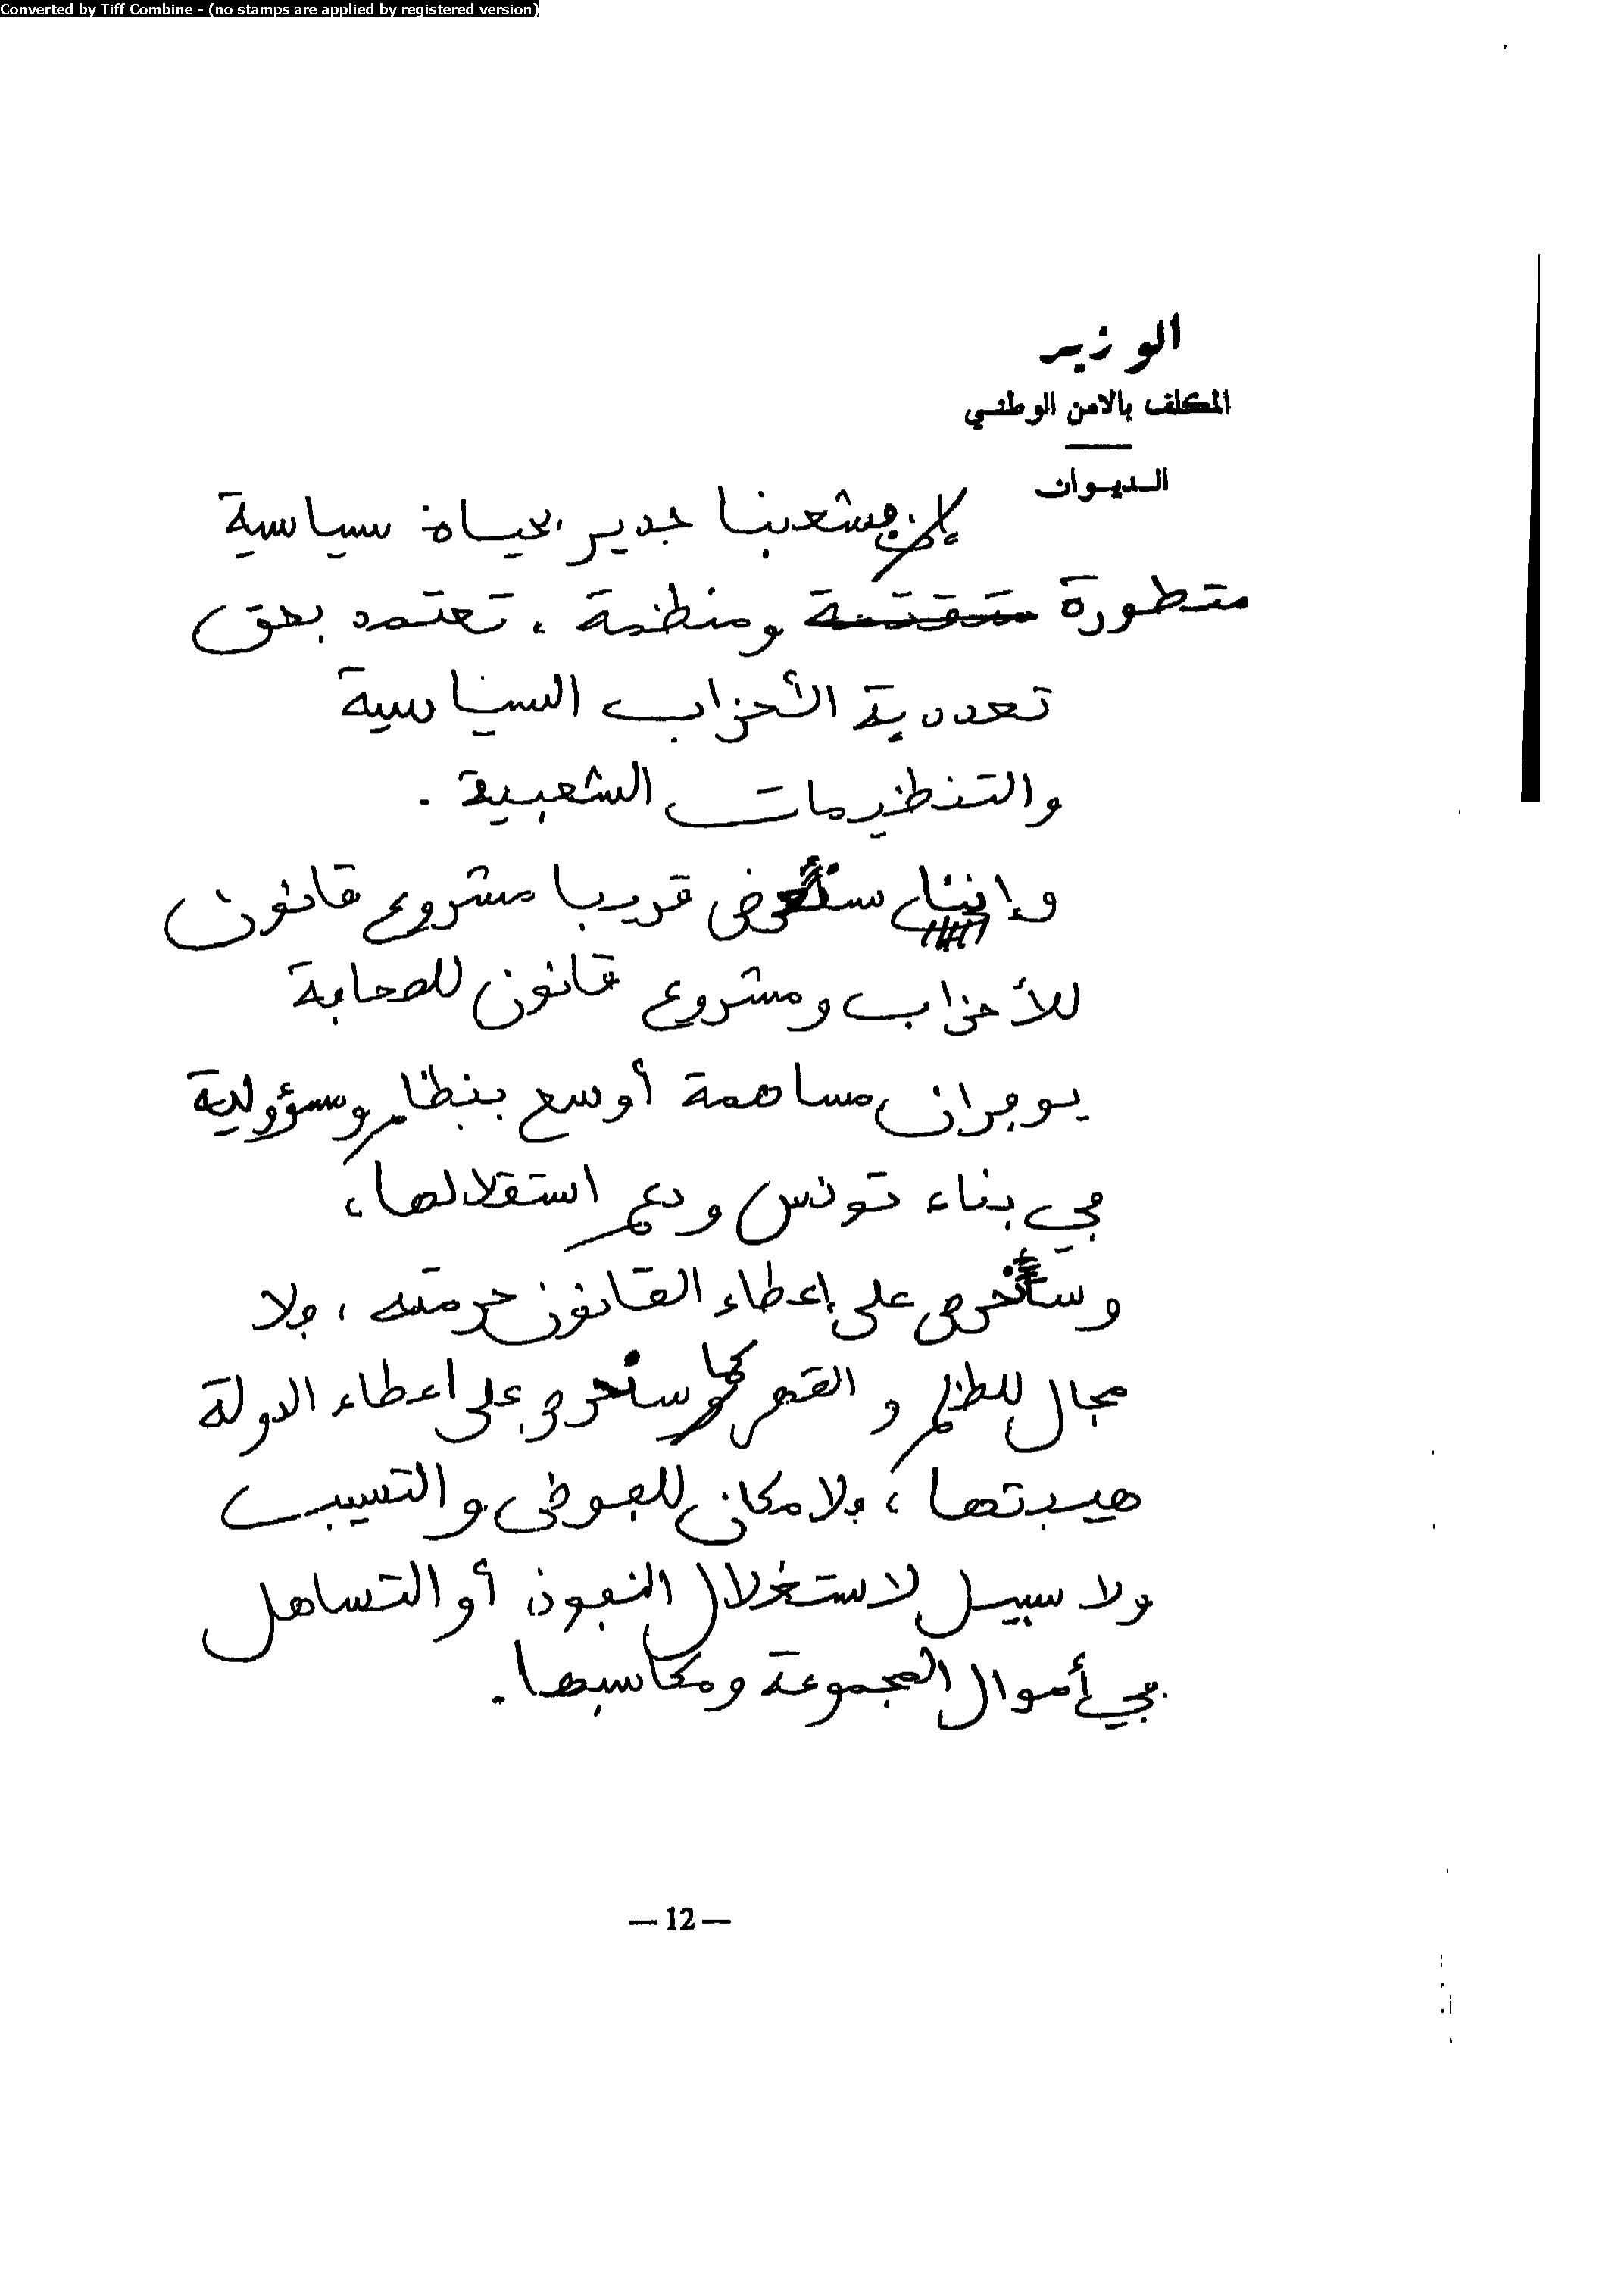 Converted by Tiff Combine - (no stamps are applied by registered version)
الوزير
المكلف بالامن الوطني
الديوان
إن شعبنا جدير بحياة سياسية
متطورة ومنظمة، تعتمد بحق
تعددية الأحزاب السياسية
والتنظيمات الشعبية.
وإننا سنعرض قريبا مشروع قانون
للأحزاب ومشروع قانون للصحافة
يوفران مساهمة أوسع بنظام ومسؤولية
في بناء تونس ودعم استقلالها،
وسنحرص على إعطاء القانون حرمته، فلا
مجال للظلم والقهر كما سنحرص على اعطاء الدولة
هيبتها، فلا مكان للفوضى والتسيب
ولا سبيل لاستغلال النفوذ أو التساهل
في أموال المجموعة ومكاسبها.
— 12 —